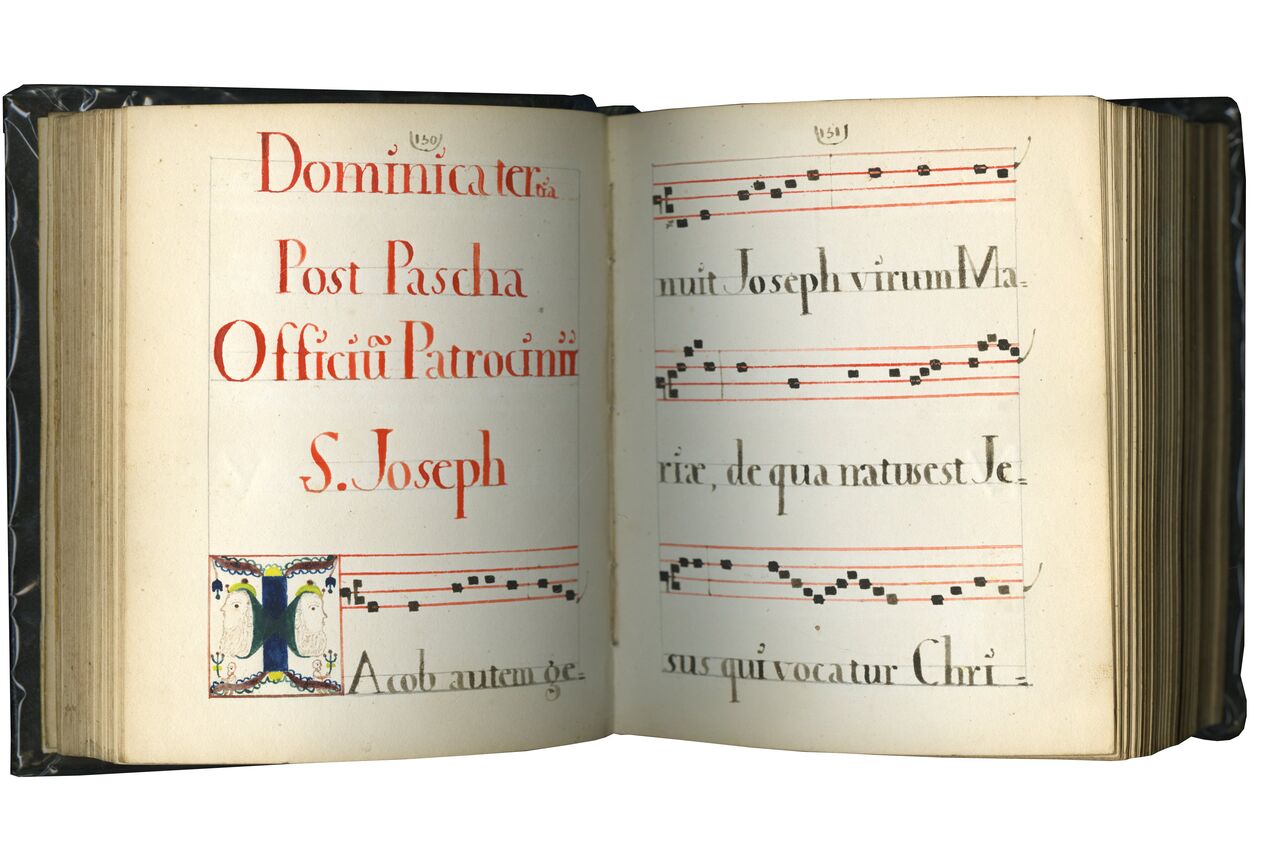 130
Dominica tertia
Post Pascha
Officiū Patrocinii
S. Joseph
IAcob autem ge=
131
nuit Joseph virum Ma=
riæ, de qua natus est Je=
sus qui vocatur Chri=